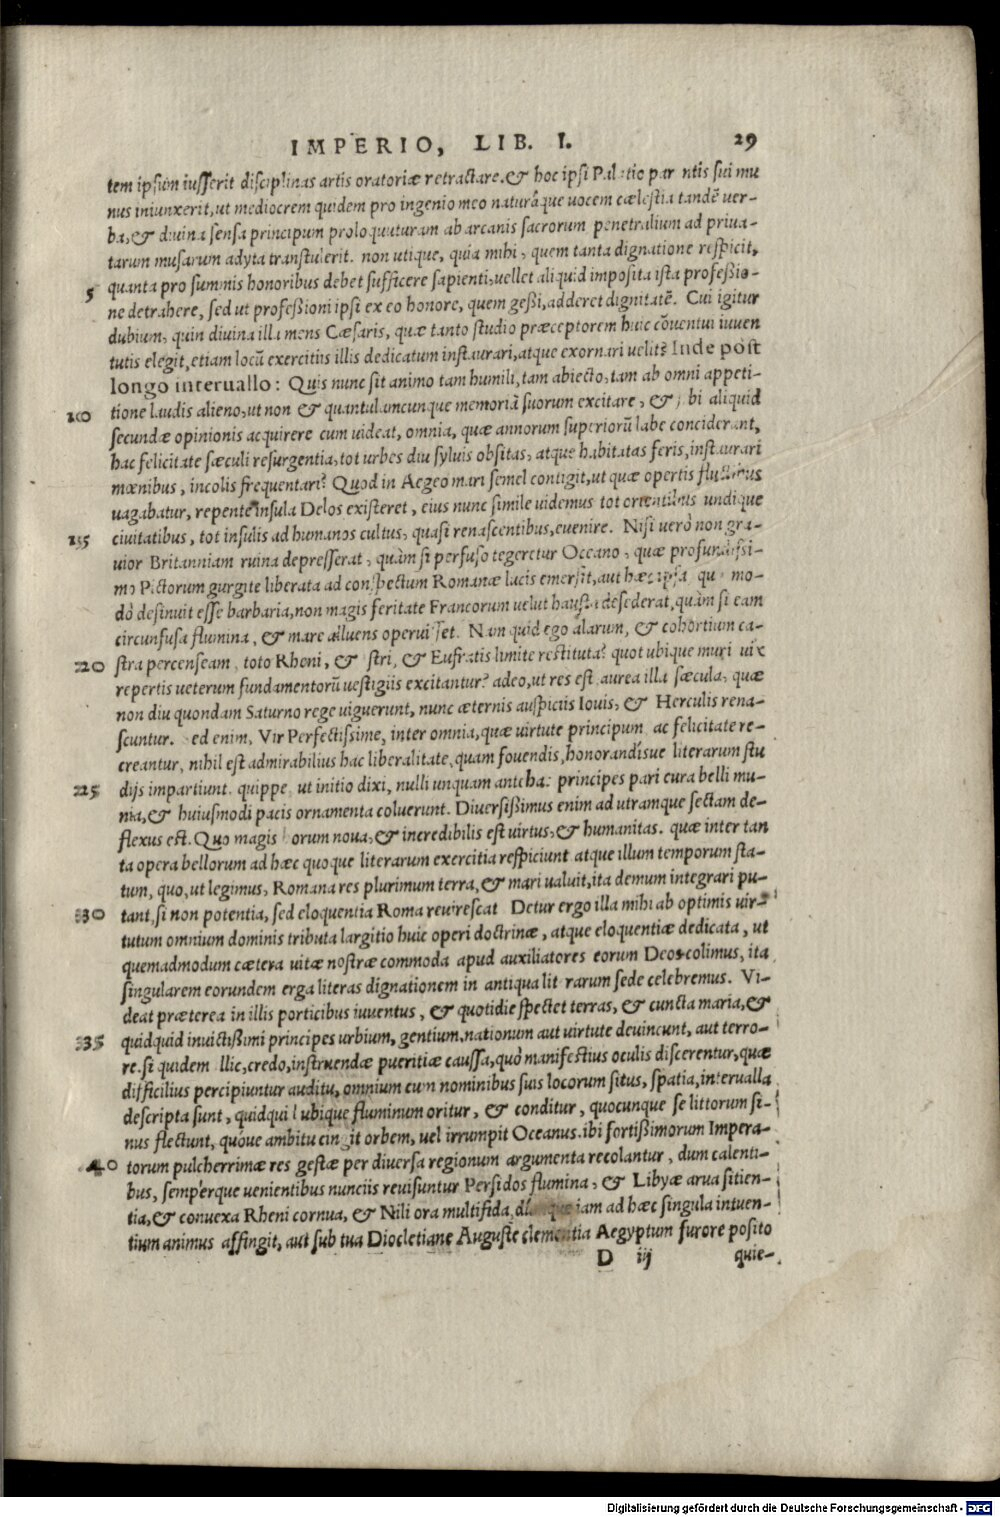 IMPERIO, LIB. I. 29
tem ipsum iusserit disciplinas artis oratoriæ retractare. & hoc ipsi sui mu
nus iniunxerit, ut mediocrem quidem pro ingenio meo naturâque uocem cælestia tandē uer-
ba, & diuina sensa principum proloquuturam ab arcanis sacrorum penetralium ad priua-
tarum musarum adyta transtulerit. non utique, quia mihi, quem tanta dignatione respicit,
5 quanta pro summis honoribus debet sufficere sapienti, uellet aliquid imposita ista professio-
ne detrahere, sed ut professioni ipsi ex eo honore, quem gessi, adderet dignitatē. Cui igitur
dubium, quin diuina illa mens Cæsaris, quæ tanto studio præceptorem huic cōuentui iuuen
tutis elegit, etiam locū exercitiis illis dedicatum instaurari, atque exornari uelit? Inde post
longo interuallo: Quis nunc sit animo tam humili, tam abiecto, tam ab omni appeti-
10 tione laudis alieno, ut non & quantulamcunque memoriā suorum excitare, & bi aliquid
secundæ opinionis acquirere cum uideat, omnia, quæ annorum superiorū labe conciderant,
hac felicitate sæculi resurgentia, tot urbes diu syluis obsitas, atque habitatas feris, instaurari
mœnibus, incolis frequentari? Quod in Aegeo mari semel contigit, ut quæ opertis fluctibus
uagabatur, repente insula Delos existeret, eius nunc simile uidemus tot orientibus undique
15 ciuitatibus, tot insulis ad humanos cultus, quasi renascentibus, euenire. Nisi uerò non gra-
uior Britanniam ruina depresserat, quàm si perfuso tegeretur Oceano, quæ profundissi-
mo Pictorum gurgite liberata ad conspectum Romanæ lucis emersit, aut hæc ipsa mo-
dò desinuit esse barbaria, non magis feritate Francorum uelut hausta desederat, quàm si eam
circunfusa flumina, & mare alluens operuisset. Nam quid ego alarum, & cohortium ca-
20 stra percenseam, toto Rheni, & stri, & Eufratis limite restituta? quot ubique muri uix
repertis ueterum fundamentorū uestigiis excitantur? adeo, ut res est, aurea illa sæcula, quæ
non diu quondam Saturno rege uiguerunt, nunc æternis auspiciis Iouis, & Herculis rena-
scuntur. ed enim, Vir Perfectissime, inter omnia, quæ uirtute principum, ac felicitate re-
creantur, nihil est admirabilius hac liberalitate, quam fouendis, honorandisue literarum stu
25 dijs impartiunt. quippe, ut initio dixi, nulli unquam antehac principes pari cura belli mu-
nia, & huiusmodi pacis ornamenta coluerunt. Diuersissimus enim ad utramque sectam de-
flexus est. Quo magis orum noua, & incredibilis est uirtus, & humanitas. quæ inter tan
ta opera bellorum ad hæc quoque literarum exercitia respiciunt atque illum temporum sta-
tum, quo, ut legimus, Romana res plurimum terra, & mari ualuit, ita demum integrari pu-
30 tant, si non potentia, sed eloquentia Roma reuirescat Detur ergo illa mihi ab optimis uir-
tutum omnium dominis tributa largitio huic operi doctrinæ, atque eloquentiæ dedicata, ut
quemadmodum cætera uitæ nostræ commoda apud auxiliatores eorum Deos colimus, ita
singularem eorundem erga literas dignationem in antiqua lit rarum sede celebremus. Vi-
deat præterea in illis porticibus iuuentus, & quotidie spectet terras, & cuncta maria, &
35 quidquid inuictissimi principes urbium, gentium, nationum aut uirtute deuincunt, aut terro-
re. si quidem llic, credo, instruendæ pueritiæ caussa, quò manifestius oculis discerentur, quæ
difficilius percipiuntur auditu, omnium cum nominibus suis locorum situs, spatia, interualla
descripta sunt, quidqui ubique fluminum oritur, & conditur, quocunque se littorum si-
nus flectunt, quóue ambitu cingit orbem, uel irrumpit Oceanus. ibi fortissimorum Impera-
40 torum pulcherrimæ res gestæ per diuersa regionum argumenta recolantur, dum calenti-
bus, semperque uenientibus nunciis reuisuntur Persidos flumina, & Libyæ arua sitien-
tia, & conuexa Rheni cornua, & Nili ora multifida, iam ad hæc singula intuen-
tium animus affingit, aut sub tua Diocletiane Auguste clementia Aegyptum furore posito
D iij quie-
Digitalisierung gefördert durch die Deutsche Forschungsgemeinschaft - DFG